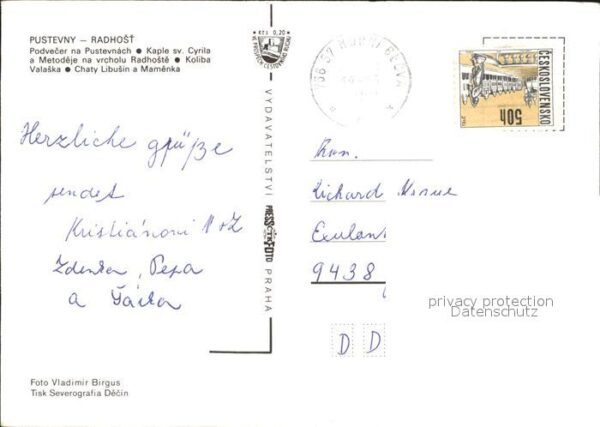 PUSTEVNY — RADHOŠŤ
Podvečer na Pustevnách ● Kaple sv. Cyrila
a Metoděje na vrcholu Radhoště ● Koliba
Valaška ● Chaty Libušín a Maměnka
Kčs 0,20
VYDAVATELSTVÍ PRESSFOTO PRAHA
756 57 HORNÍ BEČVA
ČESKOSLOVENSKO
50h
Herzliche grüße
sendet
Kristiánovi
Zdenka, Pepa
a
Richard
9438
D D
privacy protection
Datenschutz
Foto Vladimír Birgus
Tisk Severografia Děčín